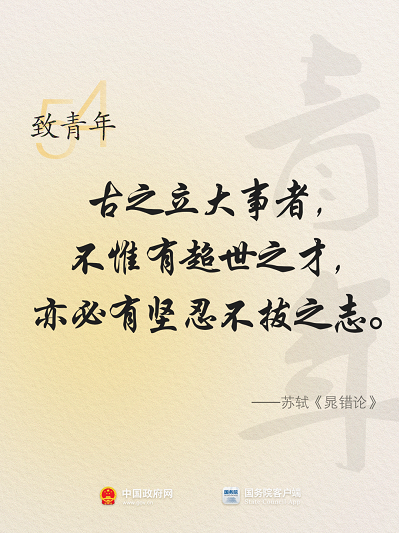 54
致青年
青年
古之立大事者，
不惟有超世之才，
亦必有坚忍不拔之志。
——苏轼《晁错论》
中国政府网
www.gov.cn
国务院
国务院客户端